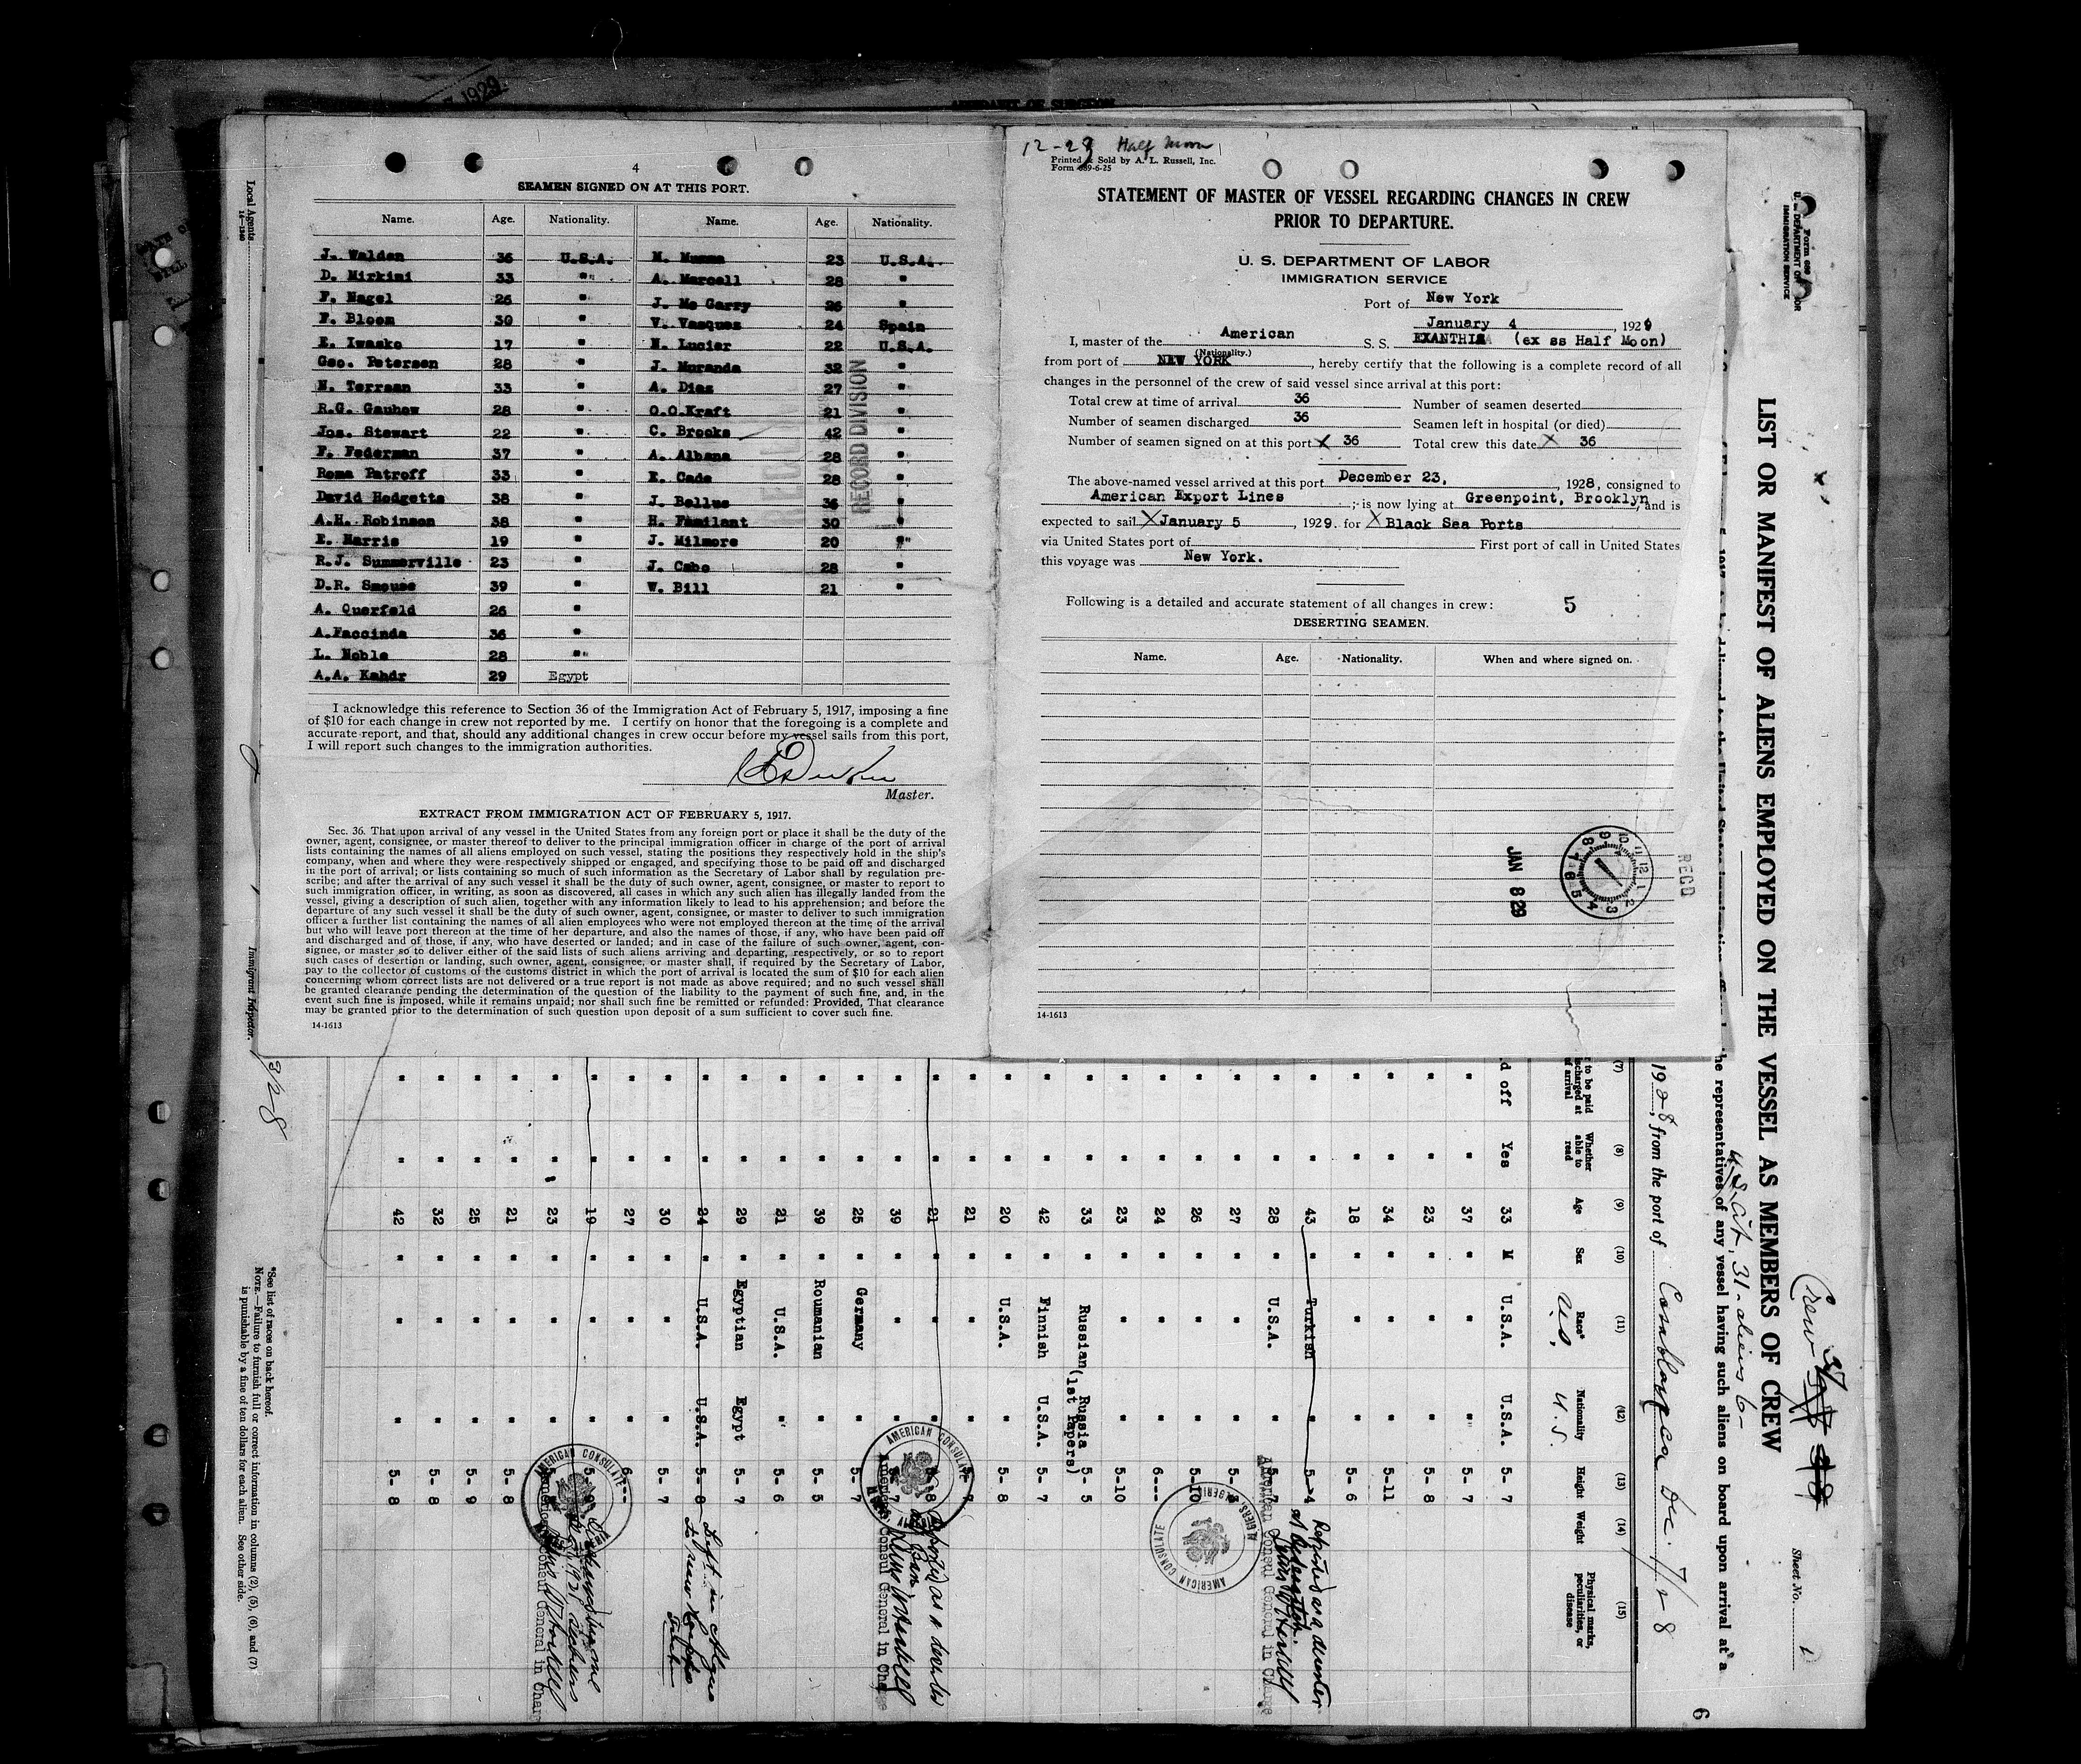 4
SEAMEN SIGNED ON AT THIS PORT.
Name. Age. Nationality. Name. Age. Nationality.
J. Walden 36 U.S.A. M. Mumma 23 U.S.A.
D. Mirkini 33 " A. Marcell 28 "
F. Nagel 26 " J. Mc Garry 26 "
F. Bloom 30 " V. Vasques 24 Spain
E. Iwasko 17 " N. Lucier 22 U.S.A.
Geo. Petersen 28 " J. Muranda 32 "
N. Terrman 33 " A. Dias 27 "
R.G. Gauhow 28 " O.O.Kraft 21 "
Jos. Stewart 22 " C. Brooks 42 "
F. Federman 37 " A. Albana 28 "
Roma Patroff 33 " E. Cade 28 "
David Hodgetts 38 " J. Bellus 36 "
A.H. Robinson 38 " H. Familant 30 "
E. Harris 19 " J. Milmore 20 "
R.J. Summerville 23 " J. Cabo 28 "
D.R. Smouse 39 " W. Bill 21 "
A. Querfeld 26 "
A.Faccinda 36 "
L. Noble 28 "
A.A. Kahdr 29 Egypt
RECORD DIVISION
I acknowledge this reference to Section 36 of the Immigration Act of February 5, 1917, imposing a fine
of $10 for each change in crew not reported by me. I certify on honor that the foregoing is a complete and
accurate report, and that, should any additional changes in crew occur before my vessel sails from this port,
I will report such changes to the immigration authorities.
Master.
EXTRACT FROM IMMIGRATION ACT OF FEBRUARY 5, 1917.
Sec. 36. That upon arrival of any vessel in the United States from any foreign port or place it shall be the duty of the
owner, agent, consignee, or master thereof to deliver to the principal immigration officer in charge of the port of arrival
lists containing the names of all aliens employed on such vessel, stating the positions they respectively hold in the ship's
company, when and where they were respectively shipped or engaged, and specifying those to be paid off and discharged
in the port of arrival; or lists containing so much of such information as the Secretary of Labor shall by regulation pre-
scribe; and after the arrival of any such vessel it shall be the duty of such owner, agent, consignee, or master to report to
such immigration officer, in writing, as soon as discovered, all cases in which any such alien has illegally landed from the
vessel, giving a description of such alien, together with any information likely to lead to his apprehension; and before the
departure of any such vessel it shall be the duty of such owner, agent, consignee, or master to deliver to such immigration
officer a further list containing the names of all alien employees who were not employed thereon at the time of the arrival
but who will leave port thereon at the time of her departure, and also the names of those, if any, who have been paid off
and discharged and of those, if any, who have deserted or landed; and in case of the failure of such owner, agent, con-
signee, or master so to deliver either of the said lists of such aliens arriving and departing, respectively, or so to report
such cases of desertion or landing, such owner, agent, consignee, or master shall, if required by the Secretary of Labor,
pay to the collector of customs of the customs district in which the port of arrival is located the sum of $10 for each alien
concerning whom correct lists are not delivered or a true report is not made as above required; and no such vessel shall
be granted clearance pending the determination of the question of the liability to the payment of such fine, and, in the
event such fine is imposed, while it remains unpaid; nor shall such fine be remitted or refunded: Provided, That clearance
may be granted prior to the determination of such question upon deposit of a sum sufficient to cover such fine.
14-1613
12-23 Half Moon
Printed & Sold by A. L. Russell, Inc.
Form 689-6-25
STATEMENT OF MASTER OF VESSEL REGARDING CHANGES IN CREW
PRIOR TO DEPARTURE.
U. S. DEPARTMENT OF LABOR
IMMIGRATION SERVICE
Port of New York
January 4, 1929
I, master of the American S. S. EXANTHIA (ex ss Half Moon)
(Nationality.)
from port of NEW YORK, hereby certify that the following is a complete record of all
changes in the personnel of the crew of said vessel since arrival at this port:
Total crew at time of arrival 36 Number of seamen deserted
Number of seamen discharged 36 Seamen left in hospital (or died)
Number of seamen signed on at this port X 36 Total crew this date X 36
The above-named vessel arrived at this port December 23, 1928, consigned to
American Export Lines; is now lying at Greenpoint, Brooklyn, and is
expected to sail X January 5, 1929. for X Black Sea Ports
via United States port of First port of call in United States
this voyage was New York.
Following is a detailed and accurate statement of all changes in crew: 5
DESERTING SEAMEN.
Name. Age. Nationality. When and where signed on.
JAN 8 29
RECD
14-1613
Form 689
U. S. DEPARTMENT OF LABOR
IMMIGRATION SERVICE
LIST OR MANIFEST OF ALIENS EMPLOYED ON THE VESSEL AS MEMBERS OF CREW
Crew 37
U.S. cit, 31 - aliens 6 -
Sheet No. 1
the representatives of any vessel having such aliens on board upon arrival at a
1928, from the port of Casablanca
6
(7) (8) (9) (10) (11) (12) (13) (14) (15)
Whether able to read Age Sex Race* Nationality Height Weight Physical marks, peculiarities, or disease
U.S. U.S.
d off Yes 33 M U.S.A. U.S.A. 5-7
" " 37 " " " 5-7
" " 23 " " " 5-8
" " 34 " " " 5-11
" " 18 " " " 5-6
" " 43 " Turkish " 5-4
" " 28 " U.S.A. "
" " 27 " " "
" " 26 " " " 5-10
" " 24 " " " 6--
" " 23 " " " 5-10
" " 33 " Russian Russia (1st Papers) 5-5
" " 42 " Finnish U.S.A. 5-7
" " 20 " U.S.A. " 5-8
" " 21 " " "
" " 21 " " "
" " 39 " " "
" " 25 " Germany " 5-7
" " 39 " Roumanian " 5-5
" " 21 " U.S.A. " 5-6
" " 29 " Egyptian Egypt 5-7
" " 24 " U.S.A. U.S.A. 5-8
" " 30 " " " 5-7
" " 27 " " " 6--
" " 19 " " "
" " 23 " " "
" " 21 " " " 5-8
" " 25 " " " 5-9
" " 32 " " " 5-8
" " 42 " " " 5-8
AMERICAN CONSULATE
American Consul General in Charge
AMERICAN CONSULATE
American Consul General in Charge
AMERICAN CONSULATE ALGIERS
American Consul General in Charge
Local Agents
Immigrant Inspector.
*See list of races on back hereof.
NOTE.—Failure to furnish full or correct information in columns (2), (5), (6), and (7)
is punishable by a fine of ten dollars for each alien. See other side.
1929
AFFIDAVIT OF SURGEON